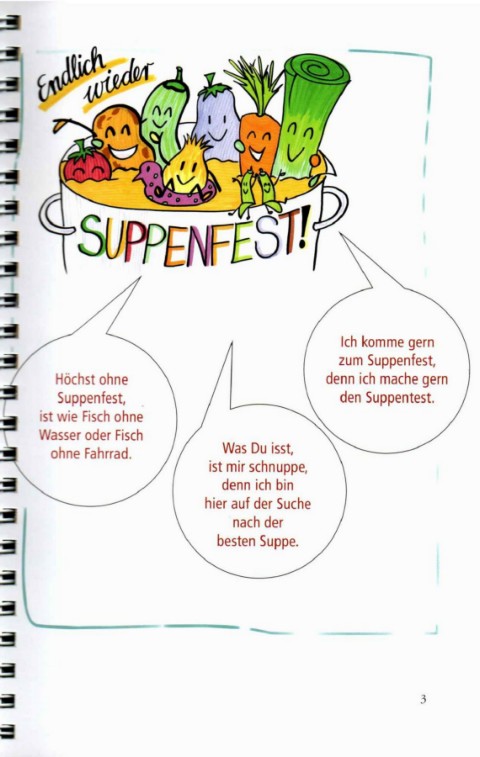 Endlich
wieder
SUPPENFEST!
Höchst ohne
Suppenfest,
ist wie Fisch ohne
Wasser oder Fisch
ohne Fahrrad.
Was Du isst,
ist mir schnuppe,
denn ich bin
hier auf der Suche
nach der
besten Suppe.
Ich komme gern
zum Suppenfest,
denn ich mache gern
den Suppentest.
3